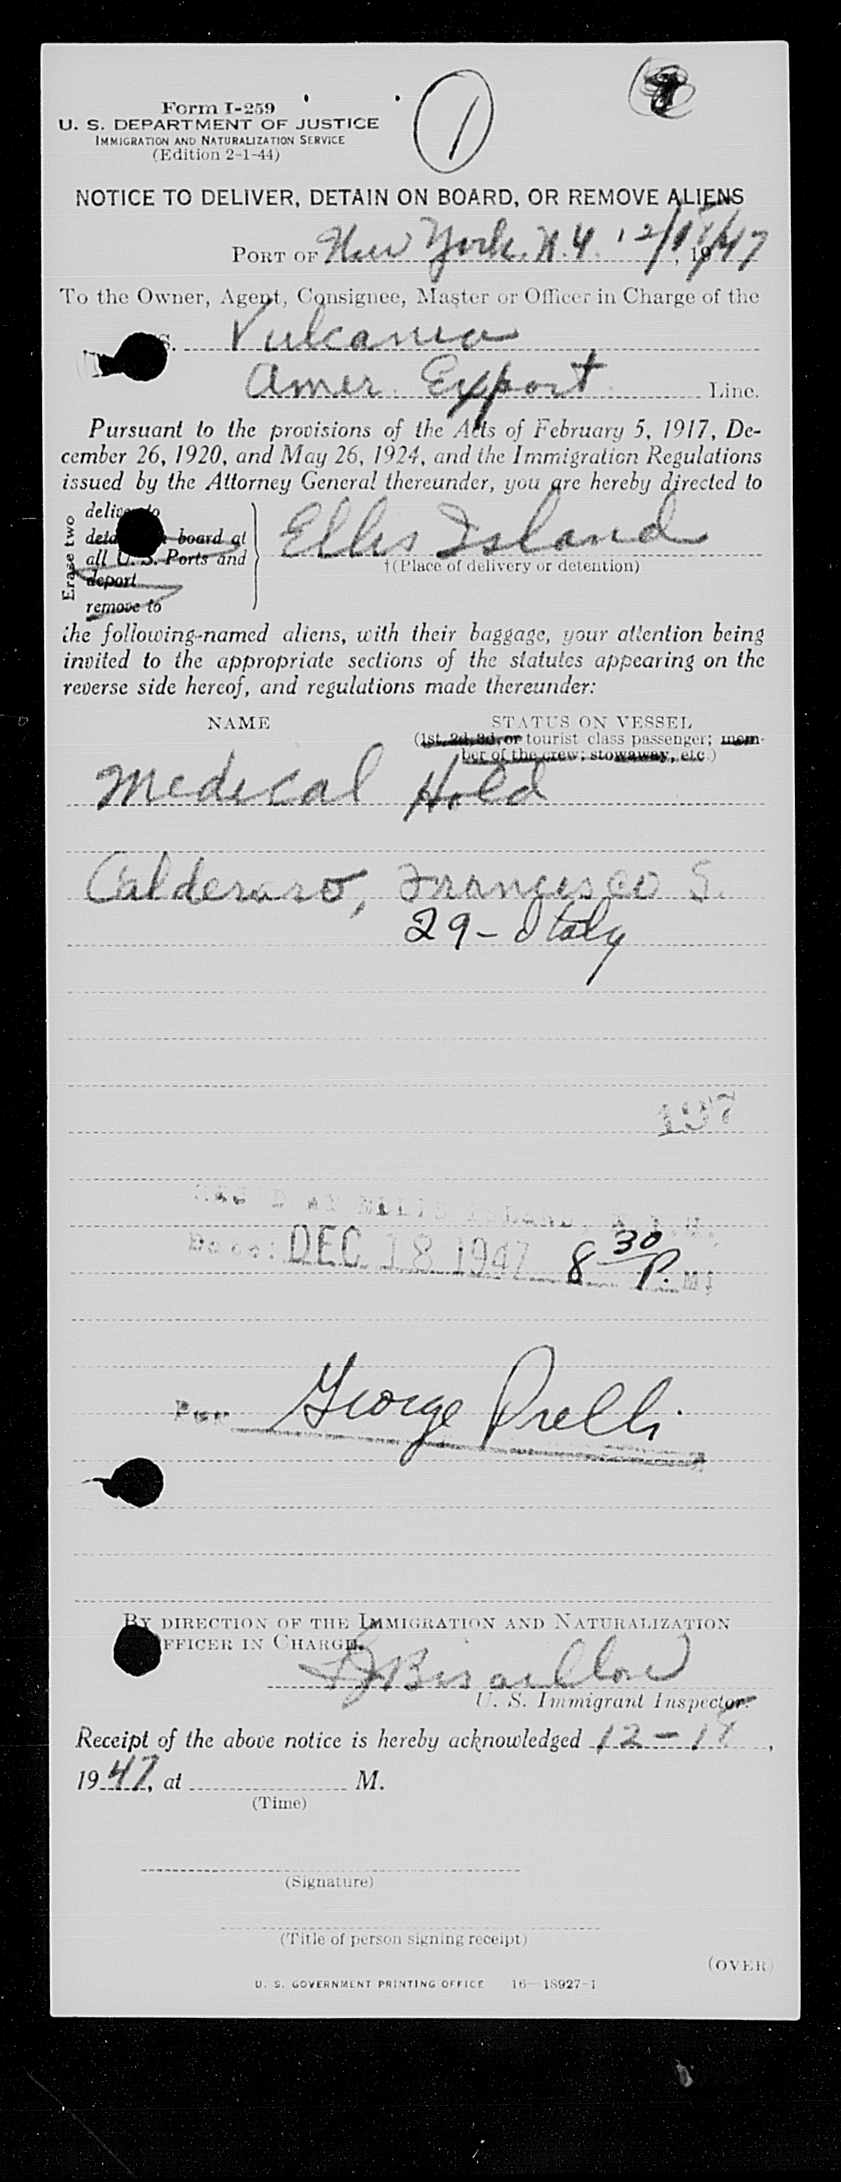 Form I-259
U. S. DEPARTMENT OF JUSTICE
IMMIGRATION AND NATURALIZATION SERVICE
(Edition 2-1-44)
1
NOTICE TO DELIVER, DETAIN ON BOARD, OR REMOVE ALIENS
PORT OF New York, N.Y. 12/18/, 1947
To the Owner, Agent, Consignee, Master or Officer in Charge of the
S. Vulcania
Amer. Export Line.
Pursuant to the provisions of the Acts of February 5, 1917, De-
cember 26, 1920, and May 26, 1924, and the Immigration Regulations
issued by the Attorney General thereunder, you are hereby directed to
Erase two
deliver to
board at
all U. S. Ports and
deport
remove to
Ellis Island
†(Place of delivery or detention)
the following-named aliens, with their baggage, your attention being
invited to the appropriate sections of the statutes appearing on the
reverse side hereof, and regulations made thereunder:
NAME STATUS ON VESSEL
(1st, 2d, 3d, or tourist class passenger; mem-
ber of the crew; stowaway, etc.)
Medical Hold
Calderaro, Francesco S.
29 - Italy
197
ELLIS ISLAND, N.Y.H.
Date: DEC 18 1947 8 30 P. M.
Per George Prelli
BY DIRECTION OF THE IMMIGRATION AND NATURALIZATION
OFFICER IN CHARGE.
U. S. Immigrant Inspector.
Receipt of the above notice is hereby acknowledged 12-18,
1947, at M.
(Time)
(Signature)
(Title of person signing receipt)
(OVER)
U. S. GOVERNMENT PRINTING OFFICE 16—18927-1